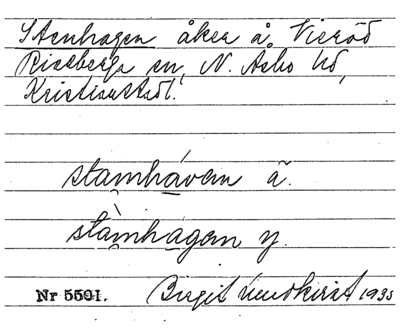 Stenhagen åker å Vieröd
Riseberga sn, N. Åsbo hd,
Kristianstad l.
stamhávan ä.
stàmhagen y.
Nr 5591. Birgit 1935